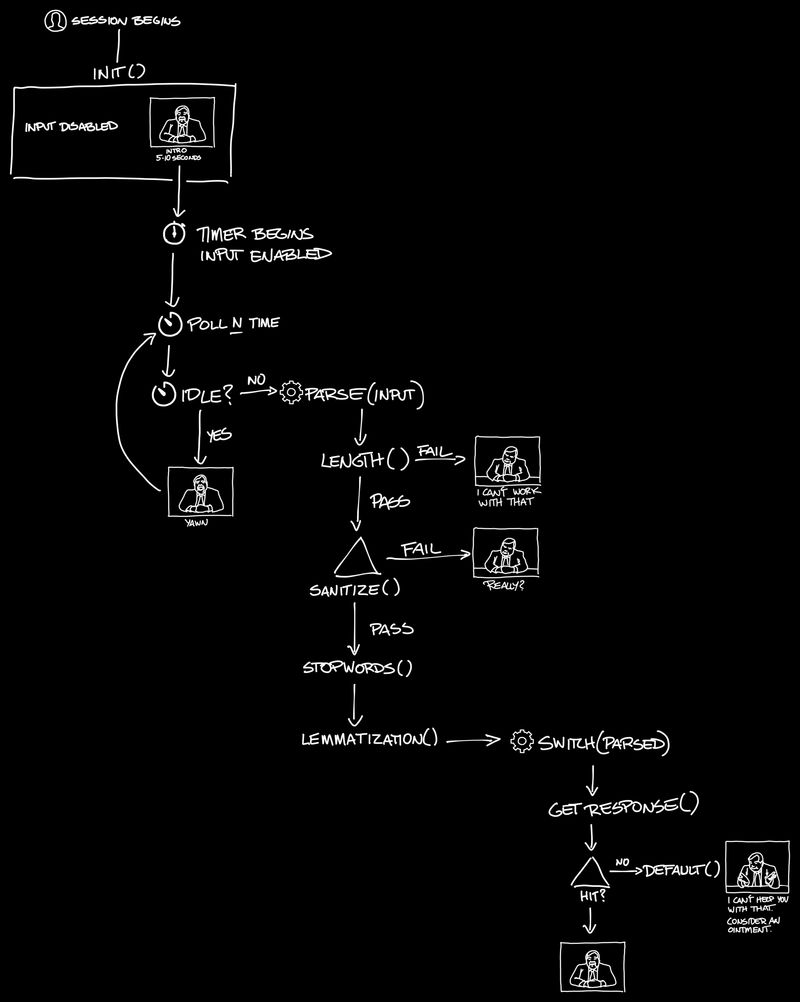 SESSION BEGINS
INIT()
INPUT DISABLED
INTRO
5-10 SECONDS
TIMER BEGINS
INPUT ENABLED
POLL N TIME
IDLE?
NO
PARSE(INPUT)
YES
YAWN
LENGTH()
FAIL
I CAN'T WORK
WITH THAT
PASS
FAIL
SANITIZE()
"REALLY?"
PASS
STOPWORDS()
LEMMATIZATION()
SWITCH(PARSED)
GET RESPONSE()
HIT?
NO
DEFAULT()
I CAN'T HELP YOU
WITH THAT.
CONSIDER AN
OINTMENT.